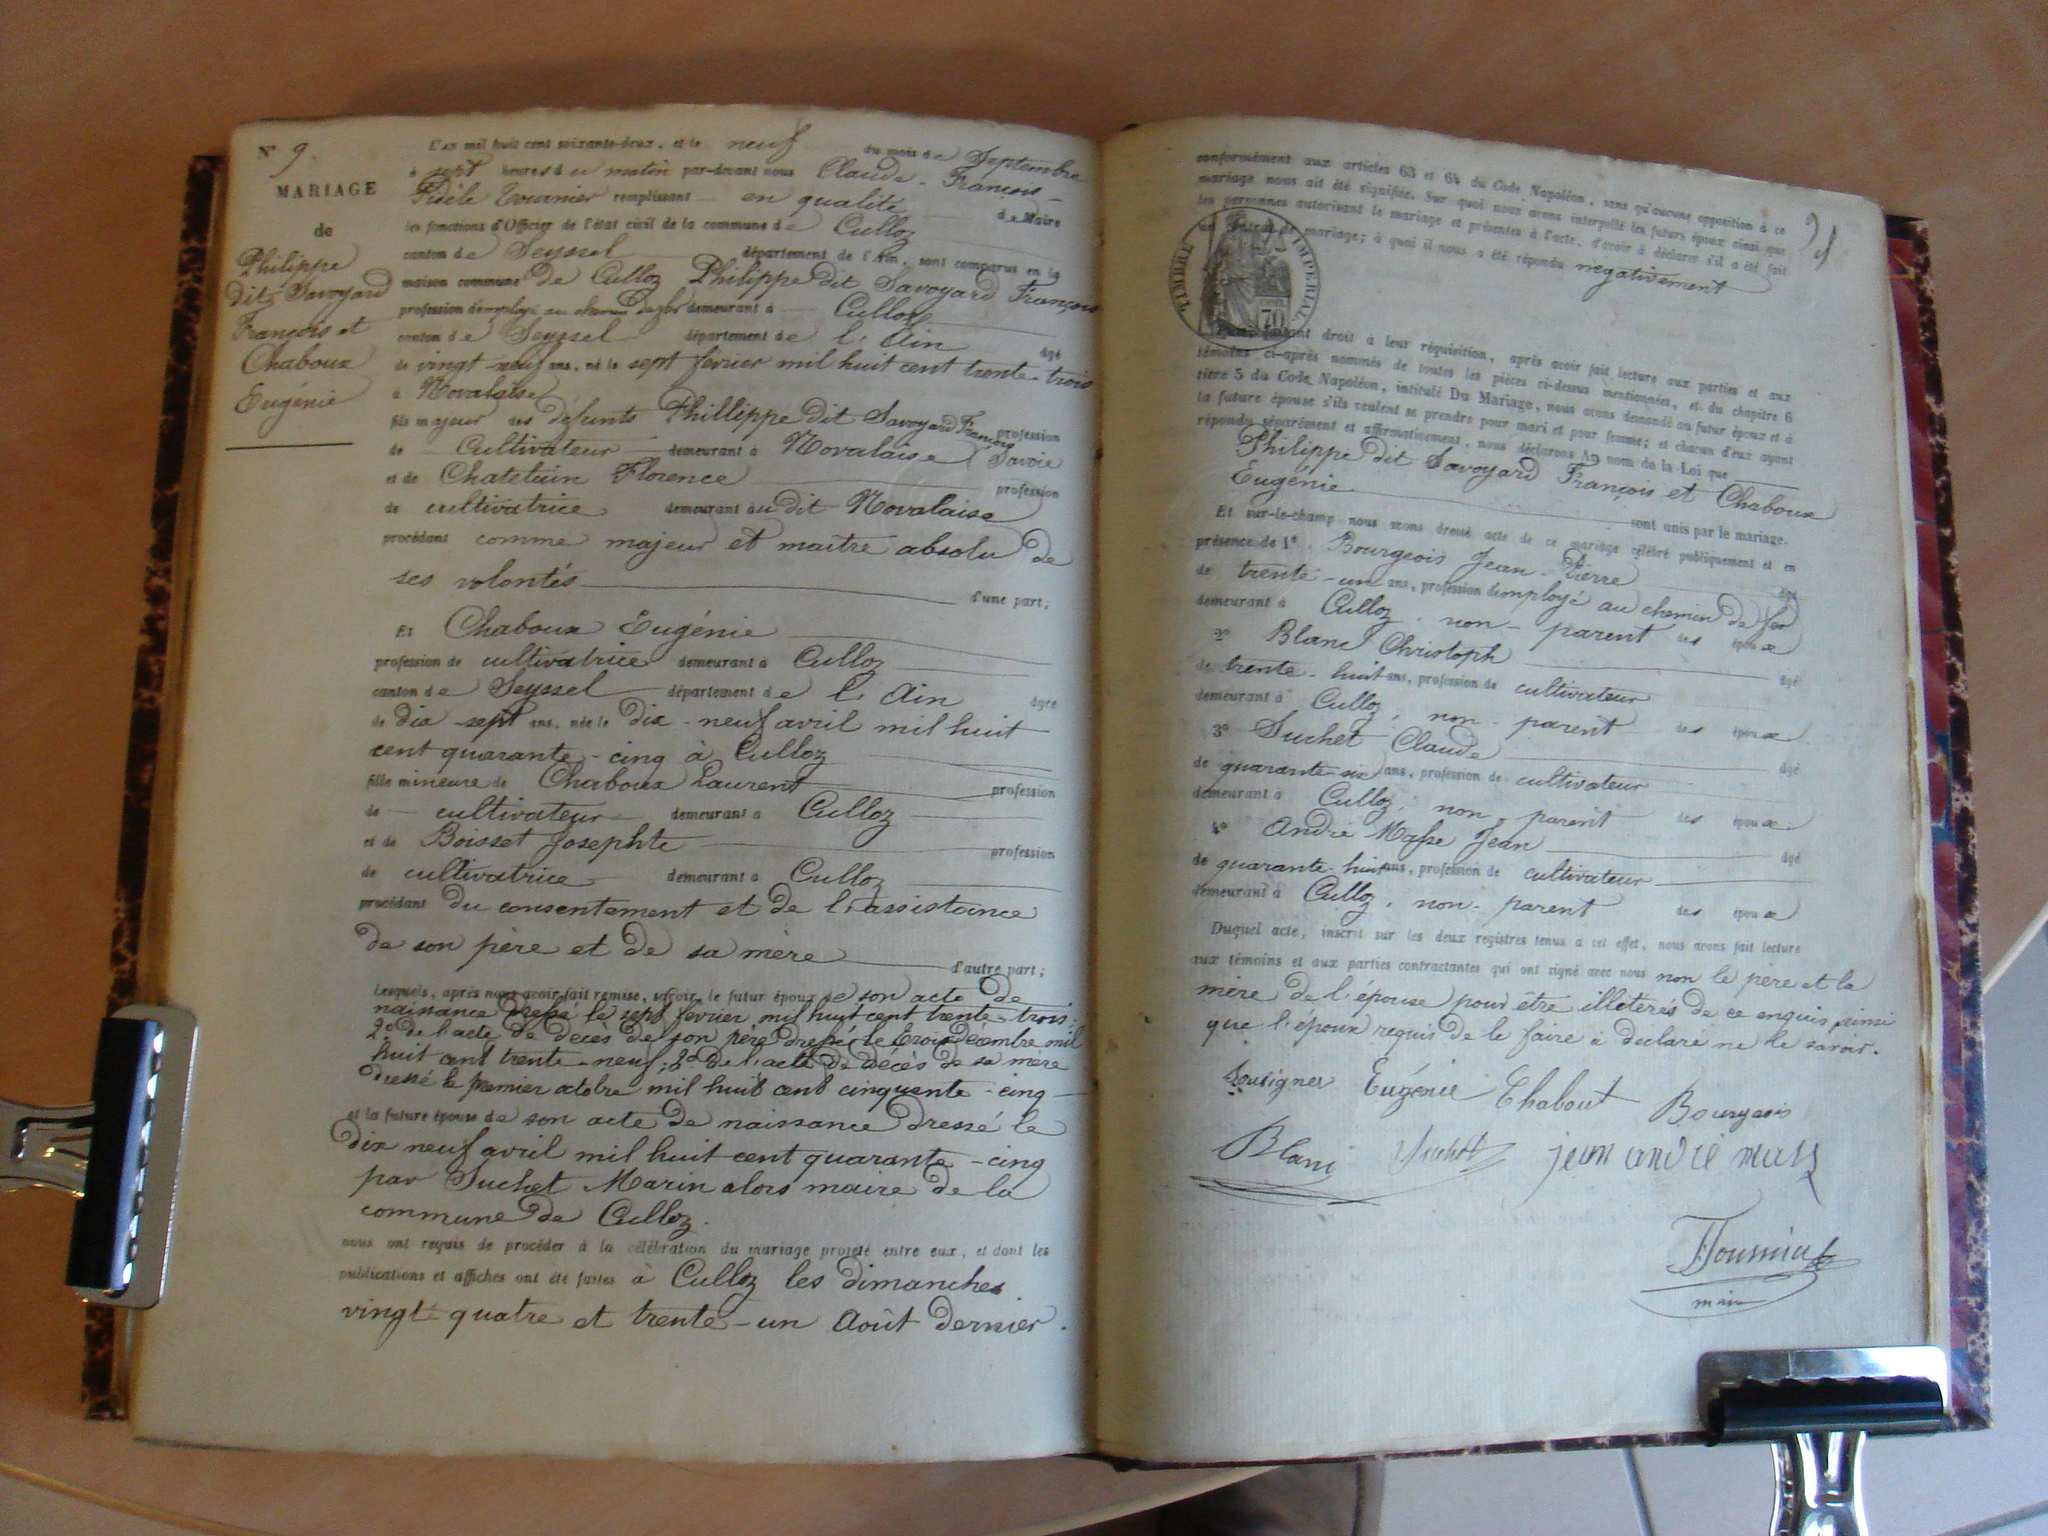 N° 9.
MARIAGE
de
Philippe
dit Savoyard
François et
Chaboux
Eugénie
L'an mil huit cent soixante-deux, et le neuf du mois de Septembre
à sept heures du matin par-devant nous Claude-François-
Fidèle Tournier remplissant en qualité de Maire
les fonctions d'Officier de l'état civil de la commune de Culloz
canton de Seyssel département de l'Ain, sont comparus en la
maison commune de Culloz Philippe dit Savoyard François
profession d'employé au chemin de fer demeurant à Culloz
canton de Seyssel département de l'Ain âgé
de vingt-neuf ans, né le sept fevrier mil huit cent trente-trois
à Novalaise
fils majeur des défunts Phillippe dit Savoyard François profession
de cultivateur demeurant à Novalaise (Savoie
et de Chatelain Florence profession
de cultivatrice demeurant audit Novalaise
procédant comme majeur et maître absolu de
ses volontés d'une part;
Et Chaboux Eugénie
profession de cultivatrice demeurant à Culloz
canton de Seyssel département de l'Ain âgée
de dix-sept ans, née le dix-neuf avril mil huit
cent quarante-cinq à Culloz
fille mineure de Chaboux Laurent profession
de cultivateur demeurant à Culloz
et de Boisset Josephte profession
de cultivatrice demeurant à Culloz
procédant du consentement et de l'assistance
de son père et de sa mère d'autre part;
Lesquels, après nous avoir fait remise, savoir, le futur époux de son acte de
naissance dressé le sept fevrier mil huit cent trente-trois;
2° de l'acte de decès de son père dressé le trois décembre mil
huit cent trente-neuf; 3° de l'acte de décès de sa mère
dressé le premier octobre mil huit cent cinquante-cinq
et la future épouse de son acte de naissance dressé le
dix neuf avril mil huit cent quarante-cinq
par Suchet Marin alors maire de la
commune de Culloz.
nous ont requis de procéder à la célébration du mariage projeté entre eux, et dont les
publications et affiches ont été faites à Culloz les dimanches
vingt quatre et trente-un Août dernier.
conformément aux articles 63 et 64 du Code Napoléon, sans qu'aucune opposition à ce
mariage nous ait été signifiée. Sur quoi nous avons interpellé les futurs époux ainsi que
les personnes autorisant le mariage et présentes à l'acte, d'avoir à déclarer s'il a été fait
un contrat de mariage; à quoi il nous a été répondu negativement
TIMBRE IMPERIAL
70
faisant droit à leur réquisition, après avoir fait lecture aux parties et aux
témoins ci-après nommés de toutes les pièces ci-dessus mentionnées, et du chapitre 6
titre 5 du Code Napoléon, intitulé Du Mariage, nous avons demandé au futur époux et à
la future épouse s'ils veulent se prendre pour mari et pour femme; et chacun d'eux ayant
répondu séparément et affirmativement, nous déclarons Au nom de la Loi que
Philippe dit Savoyard François et Chaboux
Eugénie sont unis par le mariage.
Et sur-le-champ nous avons dressé acte de ce mariage célébré publiquement et en
présence de 1° Bourgeois Jean-Pierre âgé
de trente-un ans, profession d'employé au chemin de fer
demeurant à Culloz, non-parent des époux
2° Blanc Christoph âgé
de trente-huit ans, profession de cultivateur
demeurant à Culloz, non-parent des époux
3° Suchet Claude âgé
de quarante-six ans, profession de cultivateur
demeurant à Culloz, non-parent des époux
4° André Masse Jean âgé
de quarante-huit ans, profession de cultivateur
demeurant à Culloz, non-parent des époux
Duquel acte, inscrit sur les deux registres tenus à cet effet, nous avons fait lecture
aux témoins et aux parties contractantes qui ont signé avec nous non le père et la
mère de l'épouse pour être illeterés de ce enquis, ainsi
que l'époux requis de le faire à declaré ne le savoir.
Eugénie Chabout Bourgeois
Blanc Suchet jean andré mass
Tournier
maire